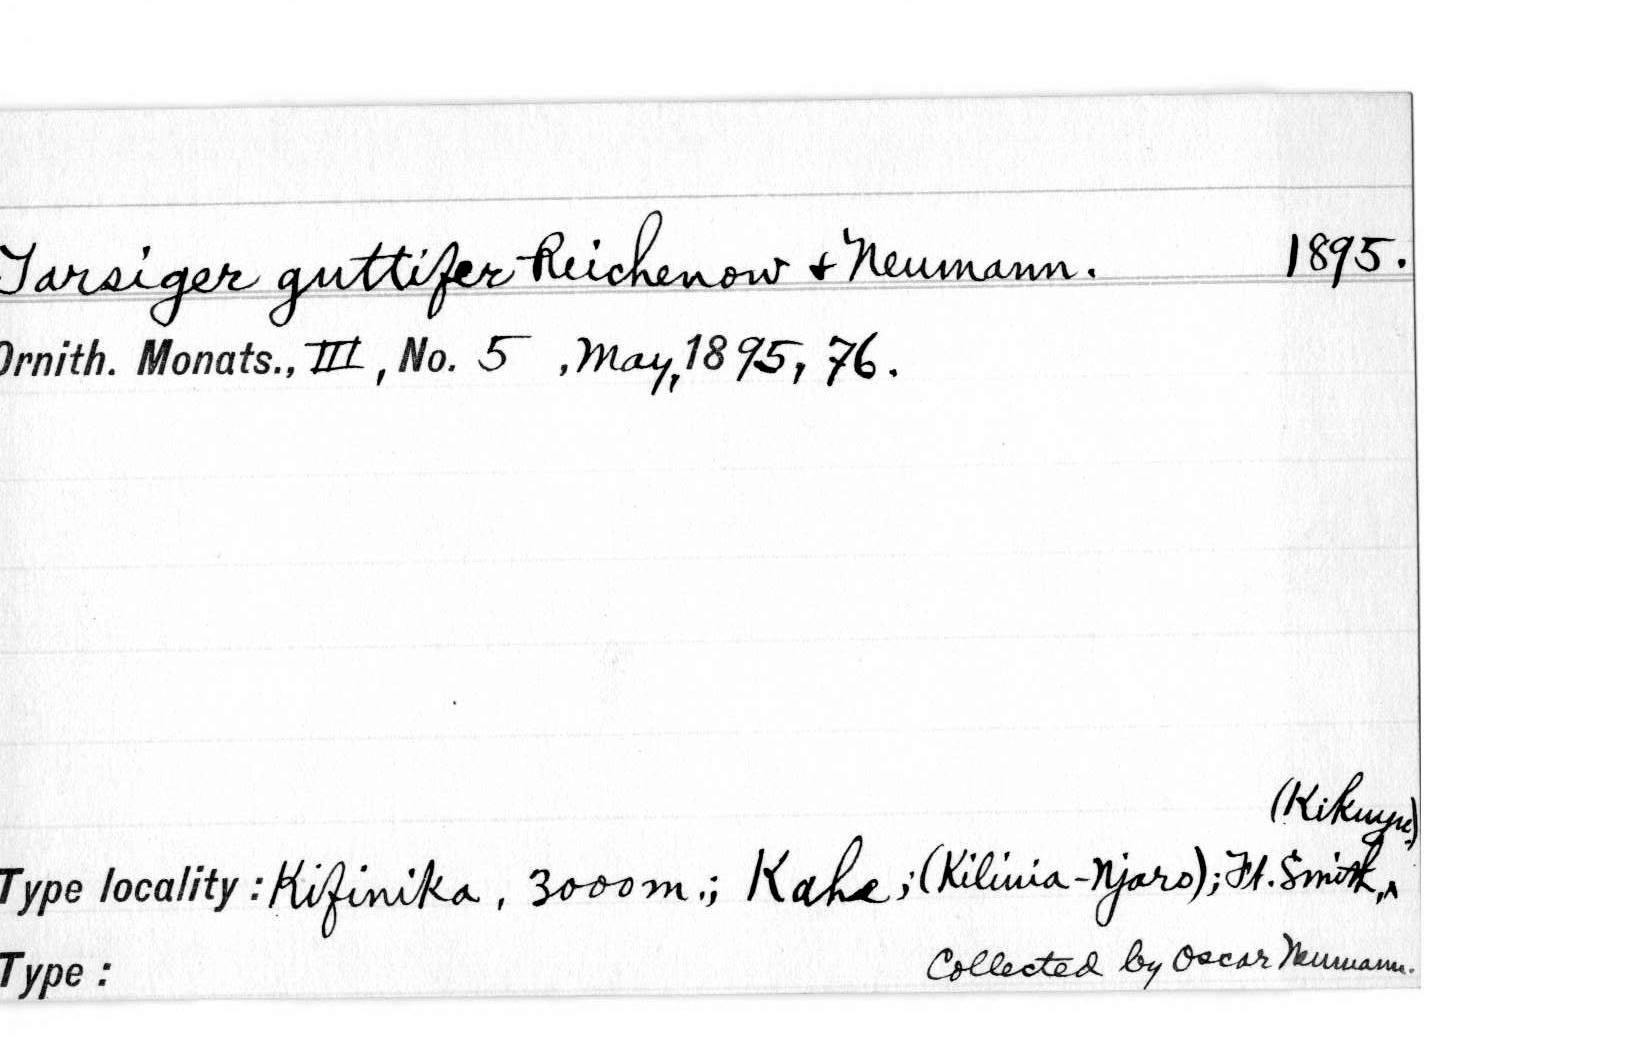 Tarsiger guttifer Reichenow & Neumann. 1895.
Ornith. Monats., III, No. 5 , May, 1895, 76.
(Kikuyu)
Type locality: Kifinika, 3000m.; Kahe; (Kilima-Njaro); Ft. Smith, ^
Type: Collected by Oscar Neumann.